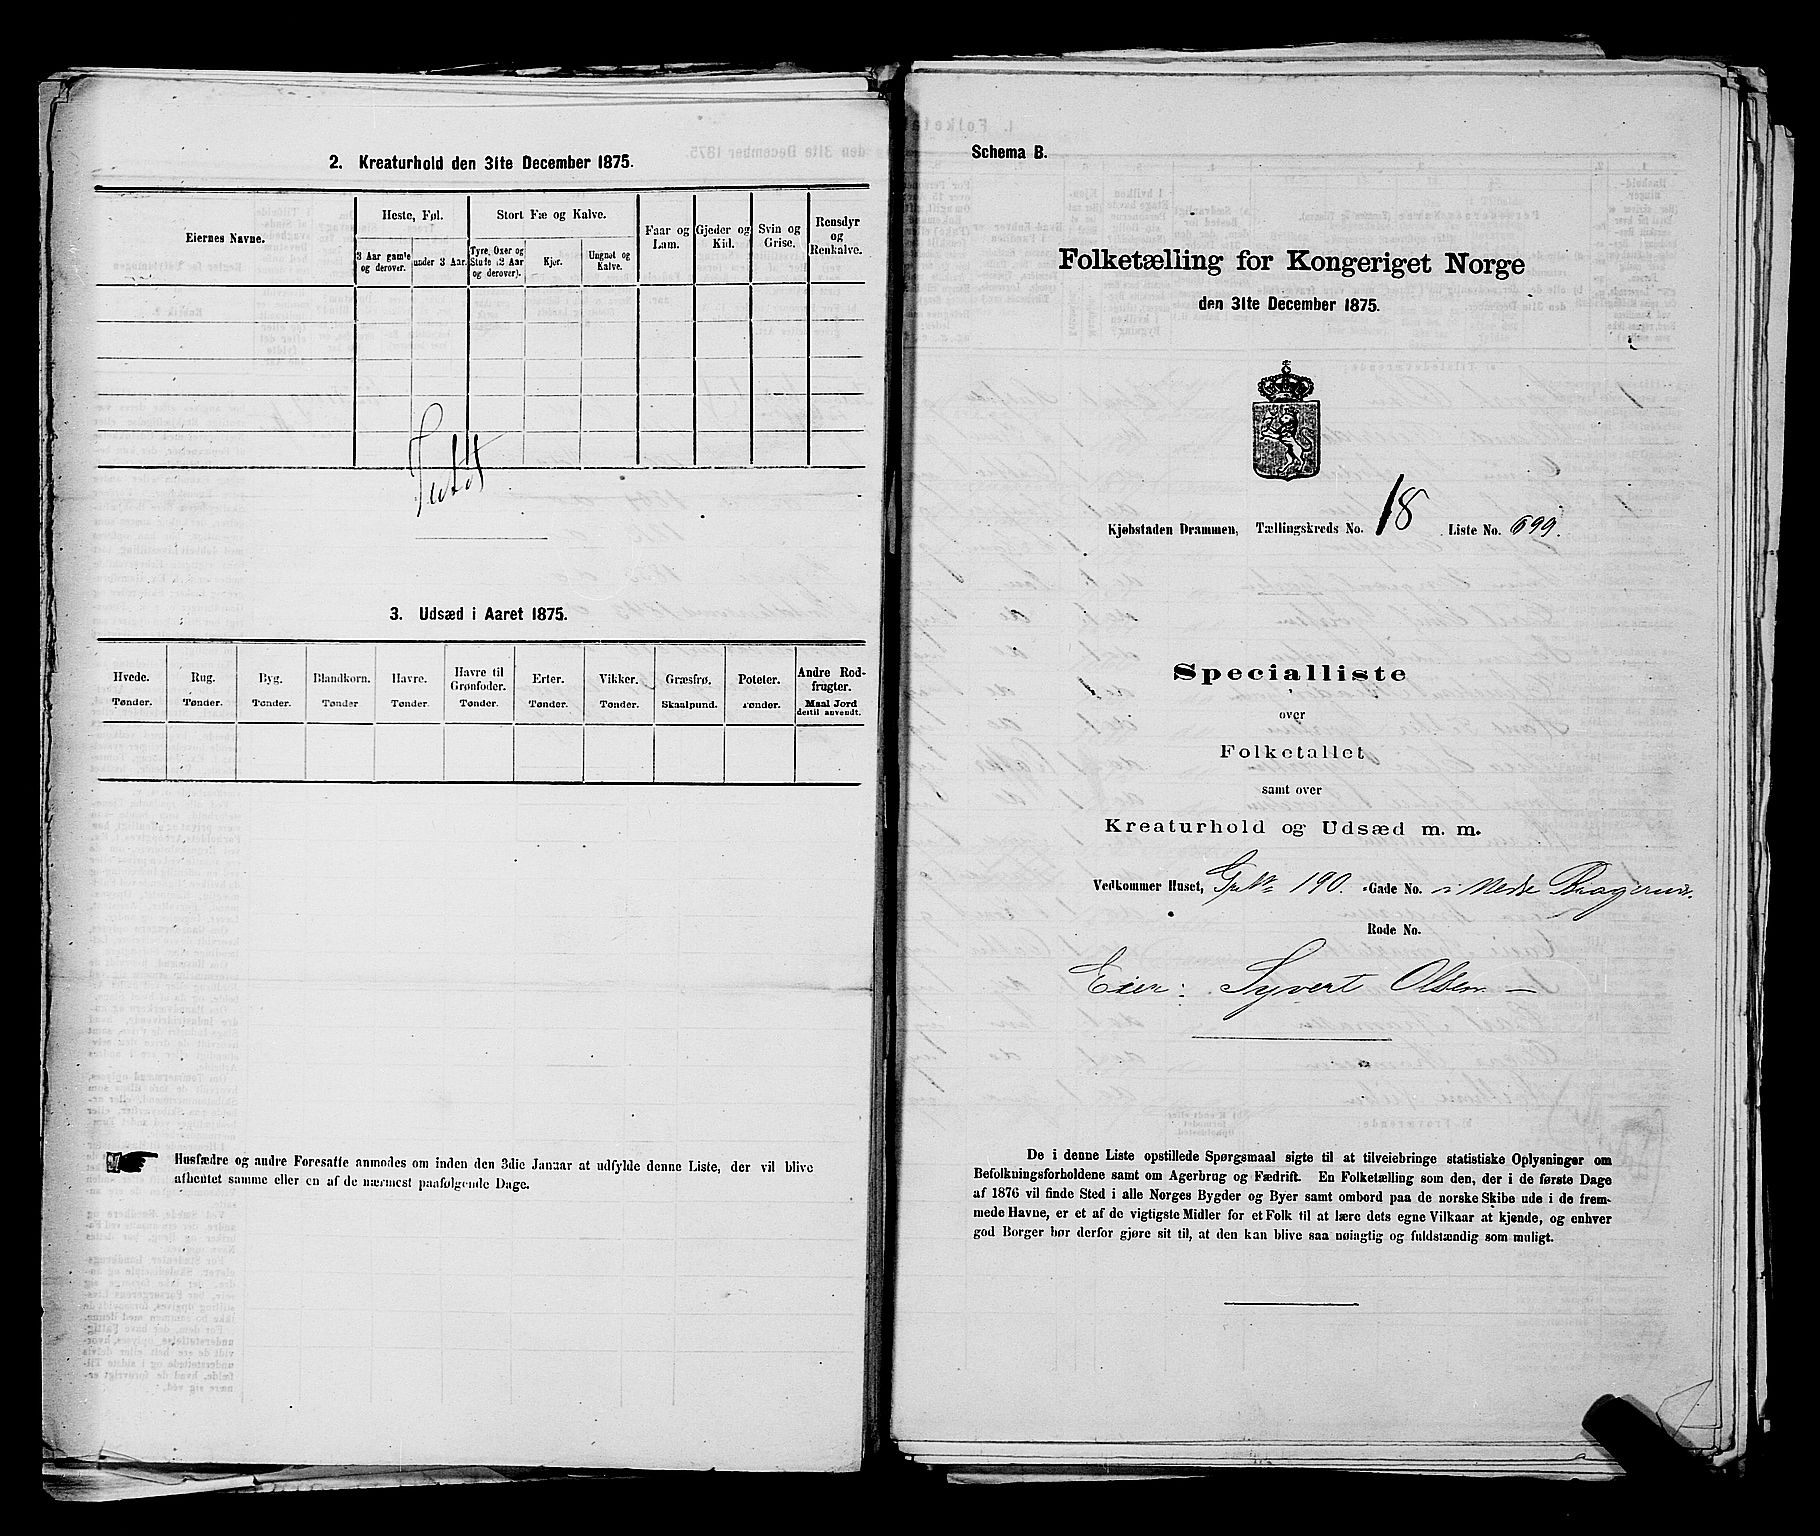 2. Kreaturhold den 31te December 1875.
Eiernes Navne.
Heste, Føl.
3 Aar gamle og derover.
under 3 Aar.
Stort Fæ og Kalve.
Tyre, Oxer og Stude (2 Aar og derover).
Kjør.
Ungnøt og Kalve.
Faar og Lam.
Gjeder og Kid.
Svin og Grise.
Rensdyr og Renkalve.
3. Udsæd i Aaret 1875.
Hvede. Tønder.
Rug. Tønder.
Byg. Tønder.
Blandkorn. Tønder.
Havre. Tønder.
Havre til Grønfoder. Tønder.
Erter. Tønder.
Vikker. Tønder.
Græsfrø. Skaalpund.
Poteter. Tønder.
Andre Rodfrugter. Maal Jord dertil anvendt.
Husfædre og andre Foresatte anmodes om inden den 3die Januar at udfylde denne Liste, der vil blive
afhentet samme eller en af de nærmest paafølgende Dage.
Schema B.
Folketælling for Kongeriget Norge
den 31te December 1875.
Kjøbstaden Drammen, Tællingskreds No. 18 Liste No. 699.
Specialliste
over
Folketallet
samt over
Kreaturhold og Udsæd m. m.
Vedkommer Huset, Gr№ 190. -Gade No. i Nedre Bragernes.
Rode No.
Eier: Syvert Olsen —
De i denne Liste opstillede Spørgsmaal sigte til at tilveiebringe statistiske Oplysninger om
Befolkningsforholdene samt om Agerbrug og Fædrift. En Folketælling som den, der i de første Dage
af 1876 vil finde Sted i alle Norges Bygder og Byer samt ombord paa de norske Skibe ude i de frem-
mede Havne, er et af de vigtigste Midler for et Folk til at lære dets egne Vilkaar at kjende, og enhver
god Borger bør derfor gjøre sit til, at den kan blive saa nøiagtig og fuldstændig som muligt.